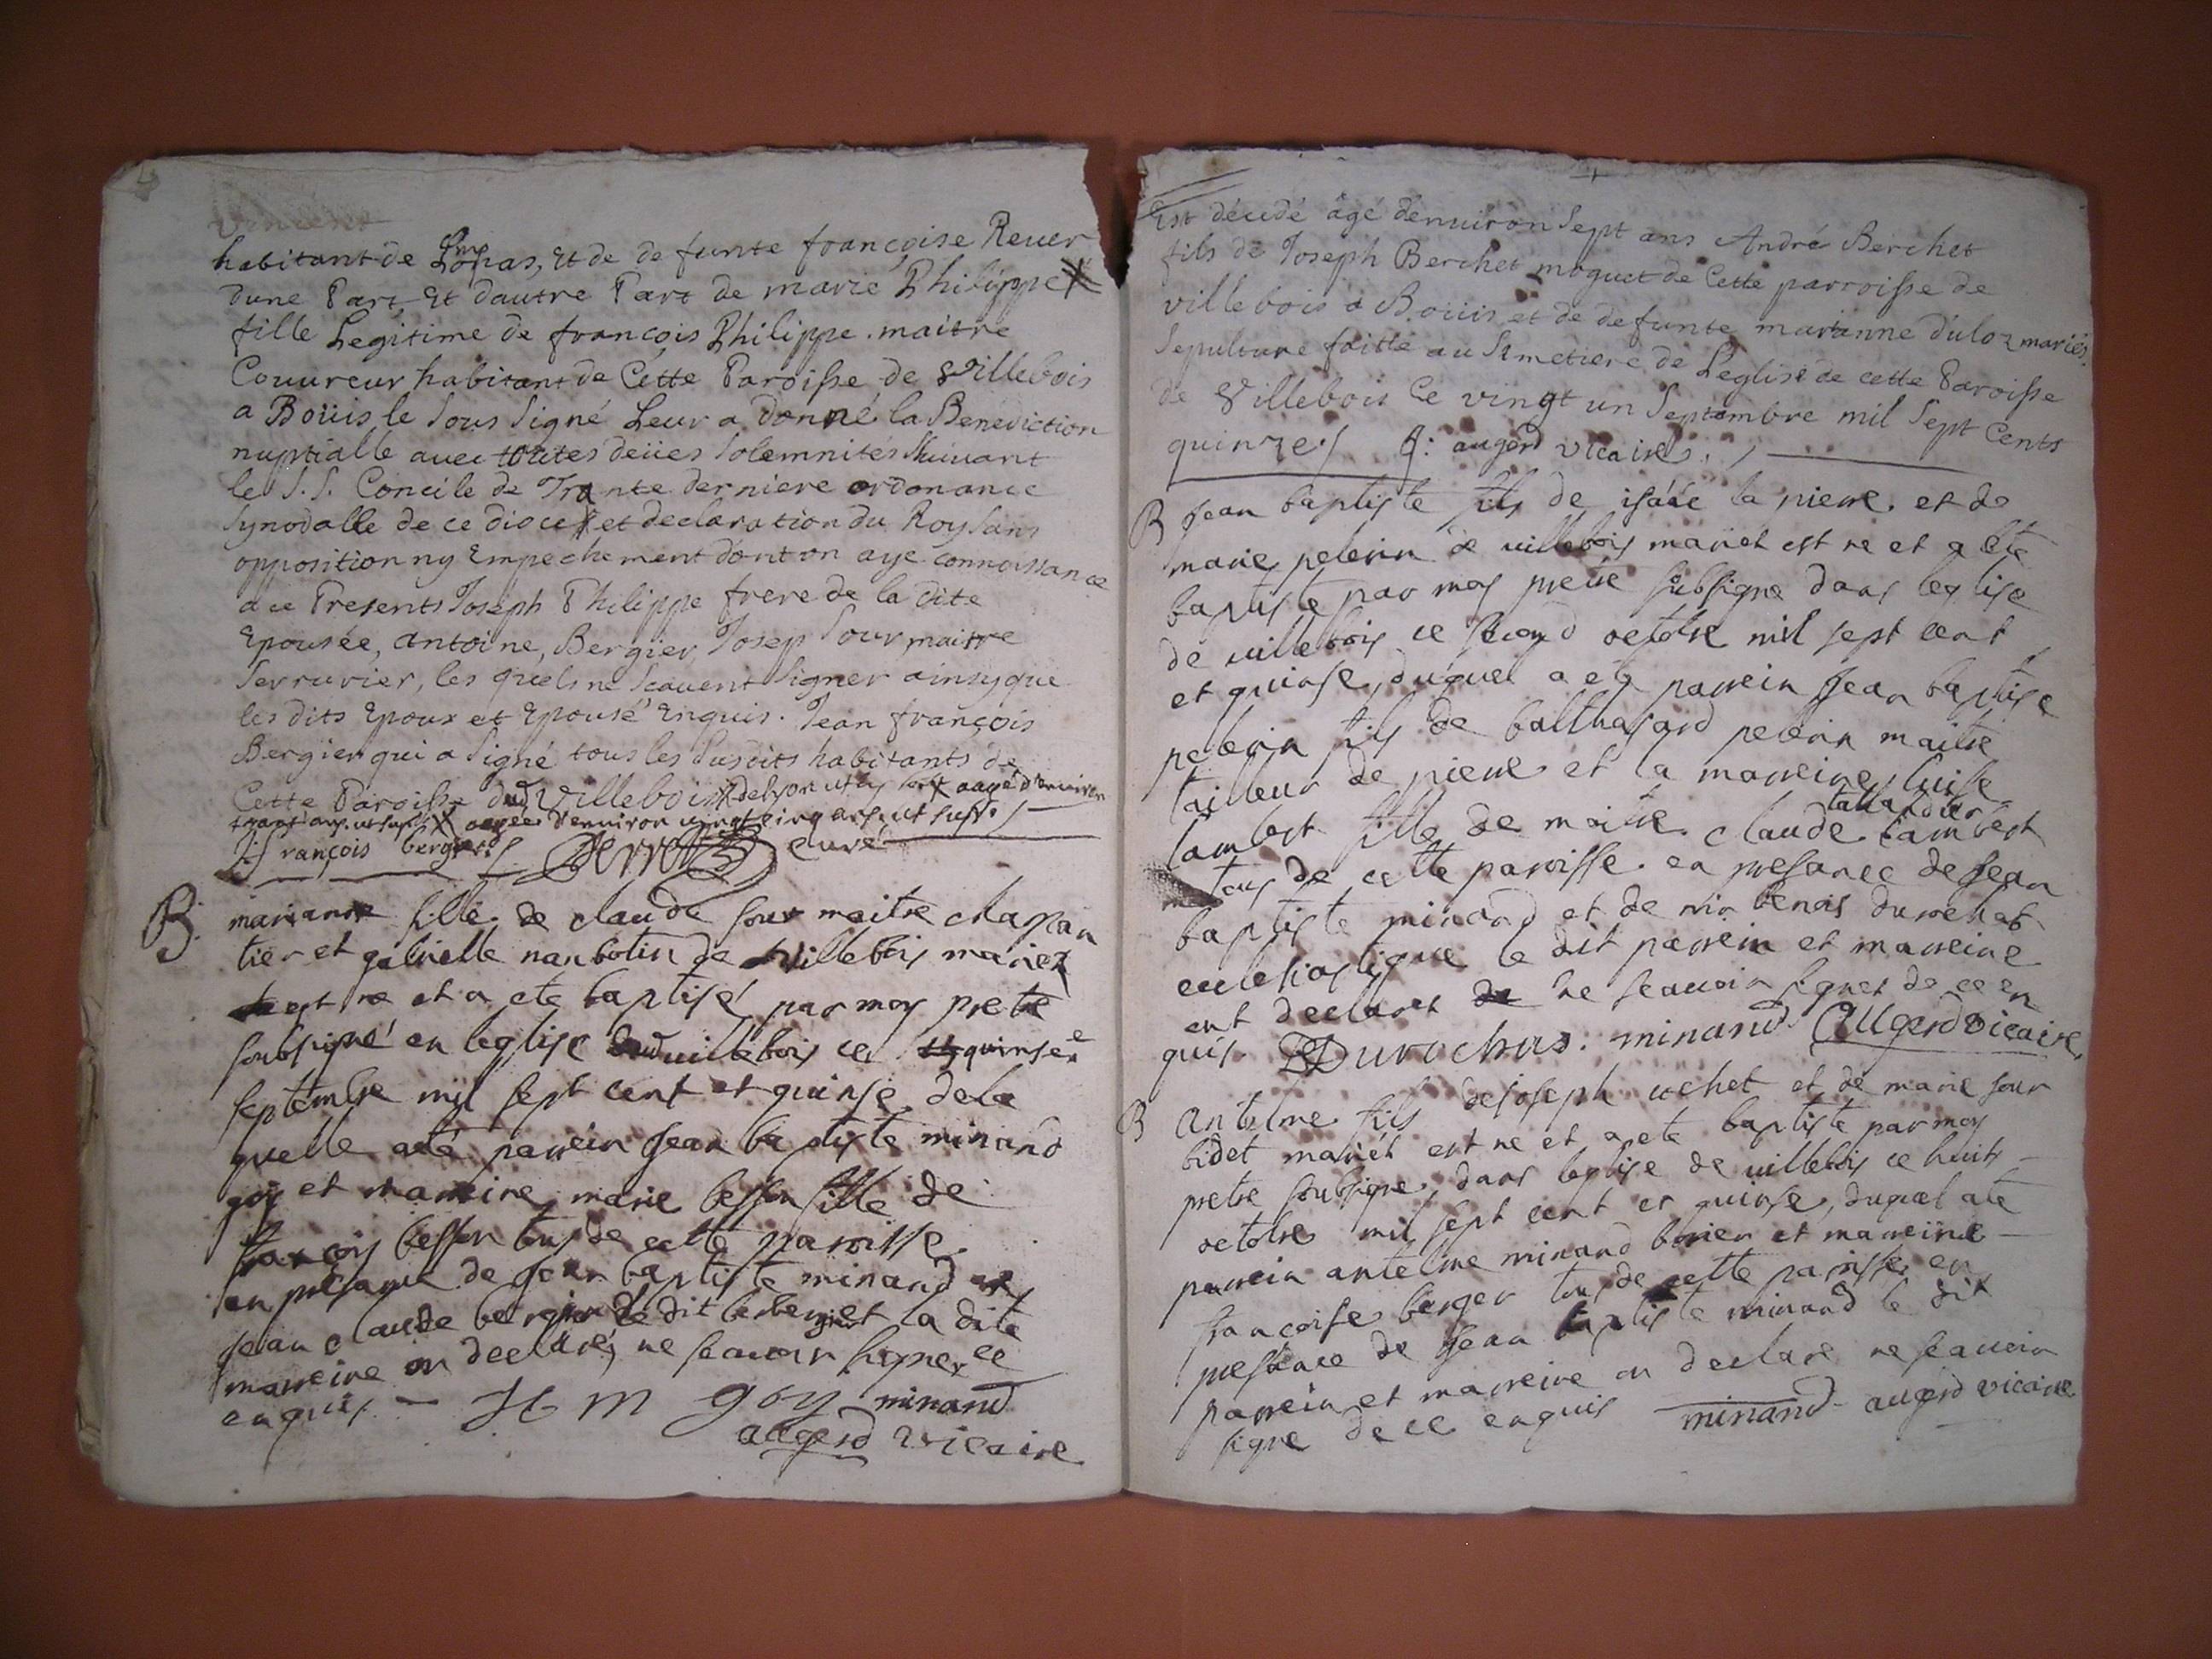 habitant de Lompnas, Et de defunte françoise Reuer
dune Part, Et dautre Part de marie Philippe X
fille Legitime de françois Philippe maitre
Couureur habitant de Cette Paroisse de Villebois
a Boüis le sous signé Leur a donné la Benediction
nuptialle auec toutes deües solemnités Suiuant
le S.S. Concile de Trante derniere ordonance
synodalle de ce dioce et declaration du Roy sans
opposition ny Empechement dont on aye connoissance
a ce Presents Joseph Philippe frere de la dite
Epousée, antoine, Bergier Josep Sour maitre
serrurier, les quels ne scauent signer ainsy que
les dits Epoux et Epousé Enquis. Jean françois
Bergier qui a signé tous les susdits habitants de
Cette Paroisse dud Villebois aagé d'enuiron
trante ans ut sup. X agee d'enuiron vingt cinq ans ut supr.
J: françois berger curé
B. mariane fille de claude sour maitre charpan
tier et gabrielle nanbotin de Villebois mariez
est ne et a ete baptisé par moy pretre
soubsigné en leglise dud villebois ce quinse
septembre mil sept cent et quinse de la
quelle a eté parrein jean baptiste minand
goy et marreine marie besson fille de
françois besson tous de cette paroisse
en presance de jean baptiste minand et
jean claude bergier dit berbenier et la dite
marreine on declaré ne scauoir signer ce
enquis. — J B m goy minand
augerd vicaire
Est décedé âgé d'enuiron Sept ans André Berchet
fils de Joseph Berchet moguet de Cette parroisse de
villebois a Boüis et de defunte marianne duloz mariés
sepulture faitte au Simetiere de L'eglise de cette Paroisse
de Villebois Ce vingt un Septembre mil Sept Cents
quinze. augerd vicaire
B jean baptiste fils de isaie la pierre et de
marie pelerin de villebois mariet est ne et a ete
baptiste par moy pretre subsigne dans leglise
de villebois ce second octobre mil sept cent
et quinse, duquel a ete parrein jean baptiste
pelerin fils de balthasard pelerin maitre
tailleur de pierre et la marreine luise
lambert fille de maitre claude lambert tallandier
tous de cette paroisse en presance de jean
baptiste minand et de benois durochat
eclesiastique le dit parrein et marreine
ont declaret ne scauoir signer de ce en
quis. Durochas. minand Augerd Vicaire
B antelme fils de joseph uchet et de marie sour
bidet mariét est ne et a ete baptiste par moy
pretre soubsigne dans leglise de villebois ce huit
octobre mil sept cent et quinse, duquel a ete
parrein antelme minand et marreine
francoise berger tous de cette paroisse en
presance de jean baptiste minand le dit
parrein et marreine on declare ne scauoir
signe de ce enquis minand augerd vicaire